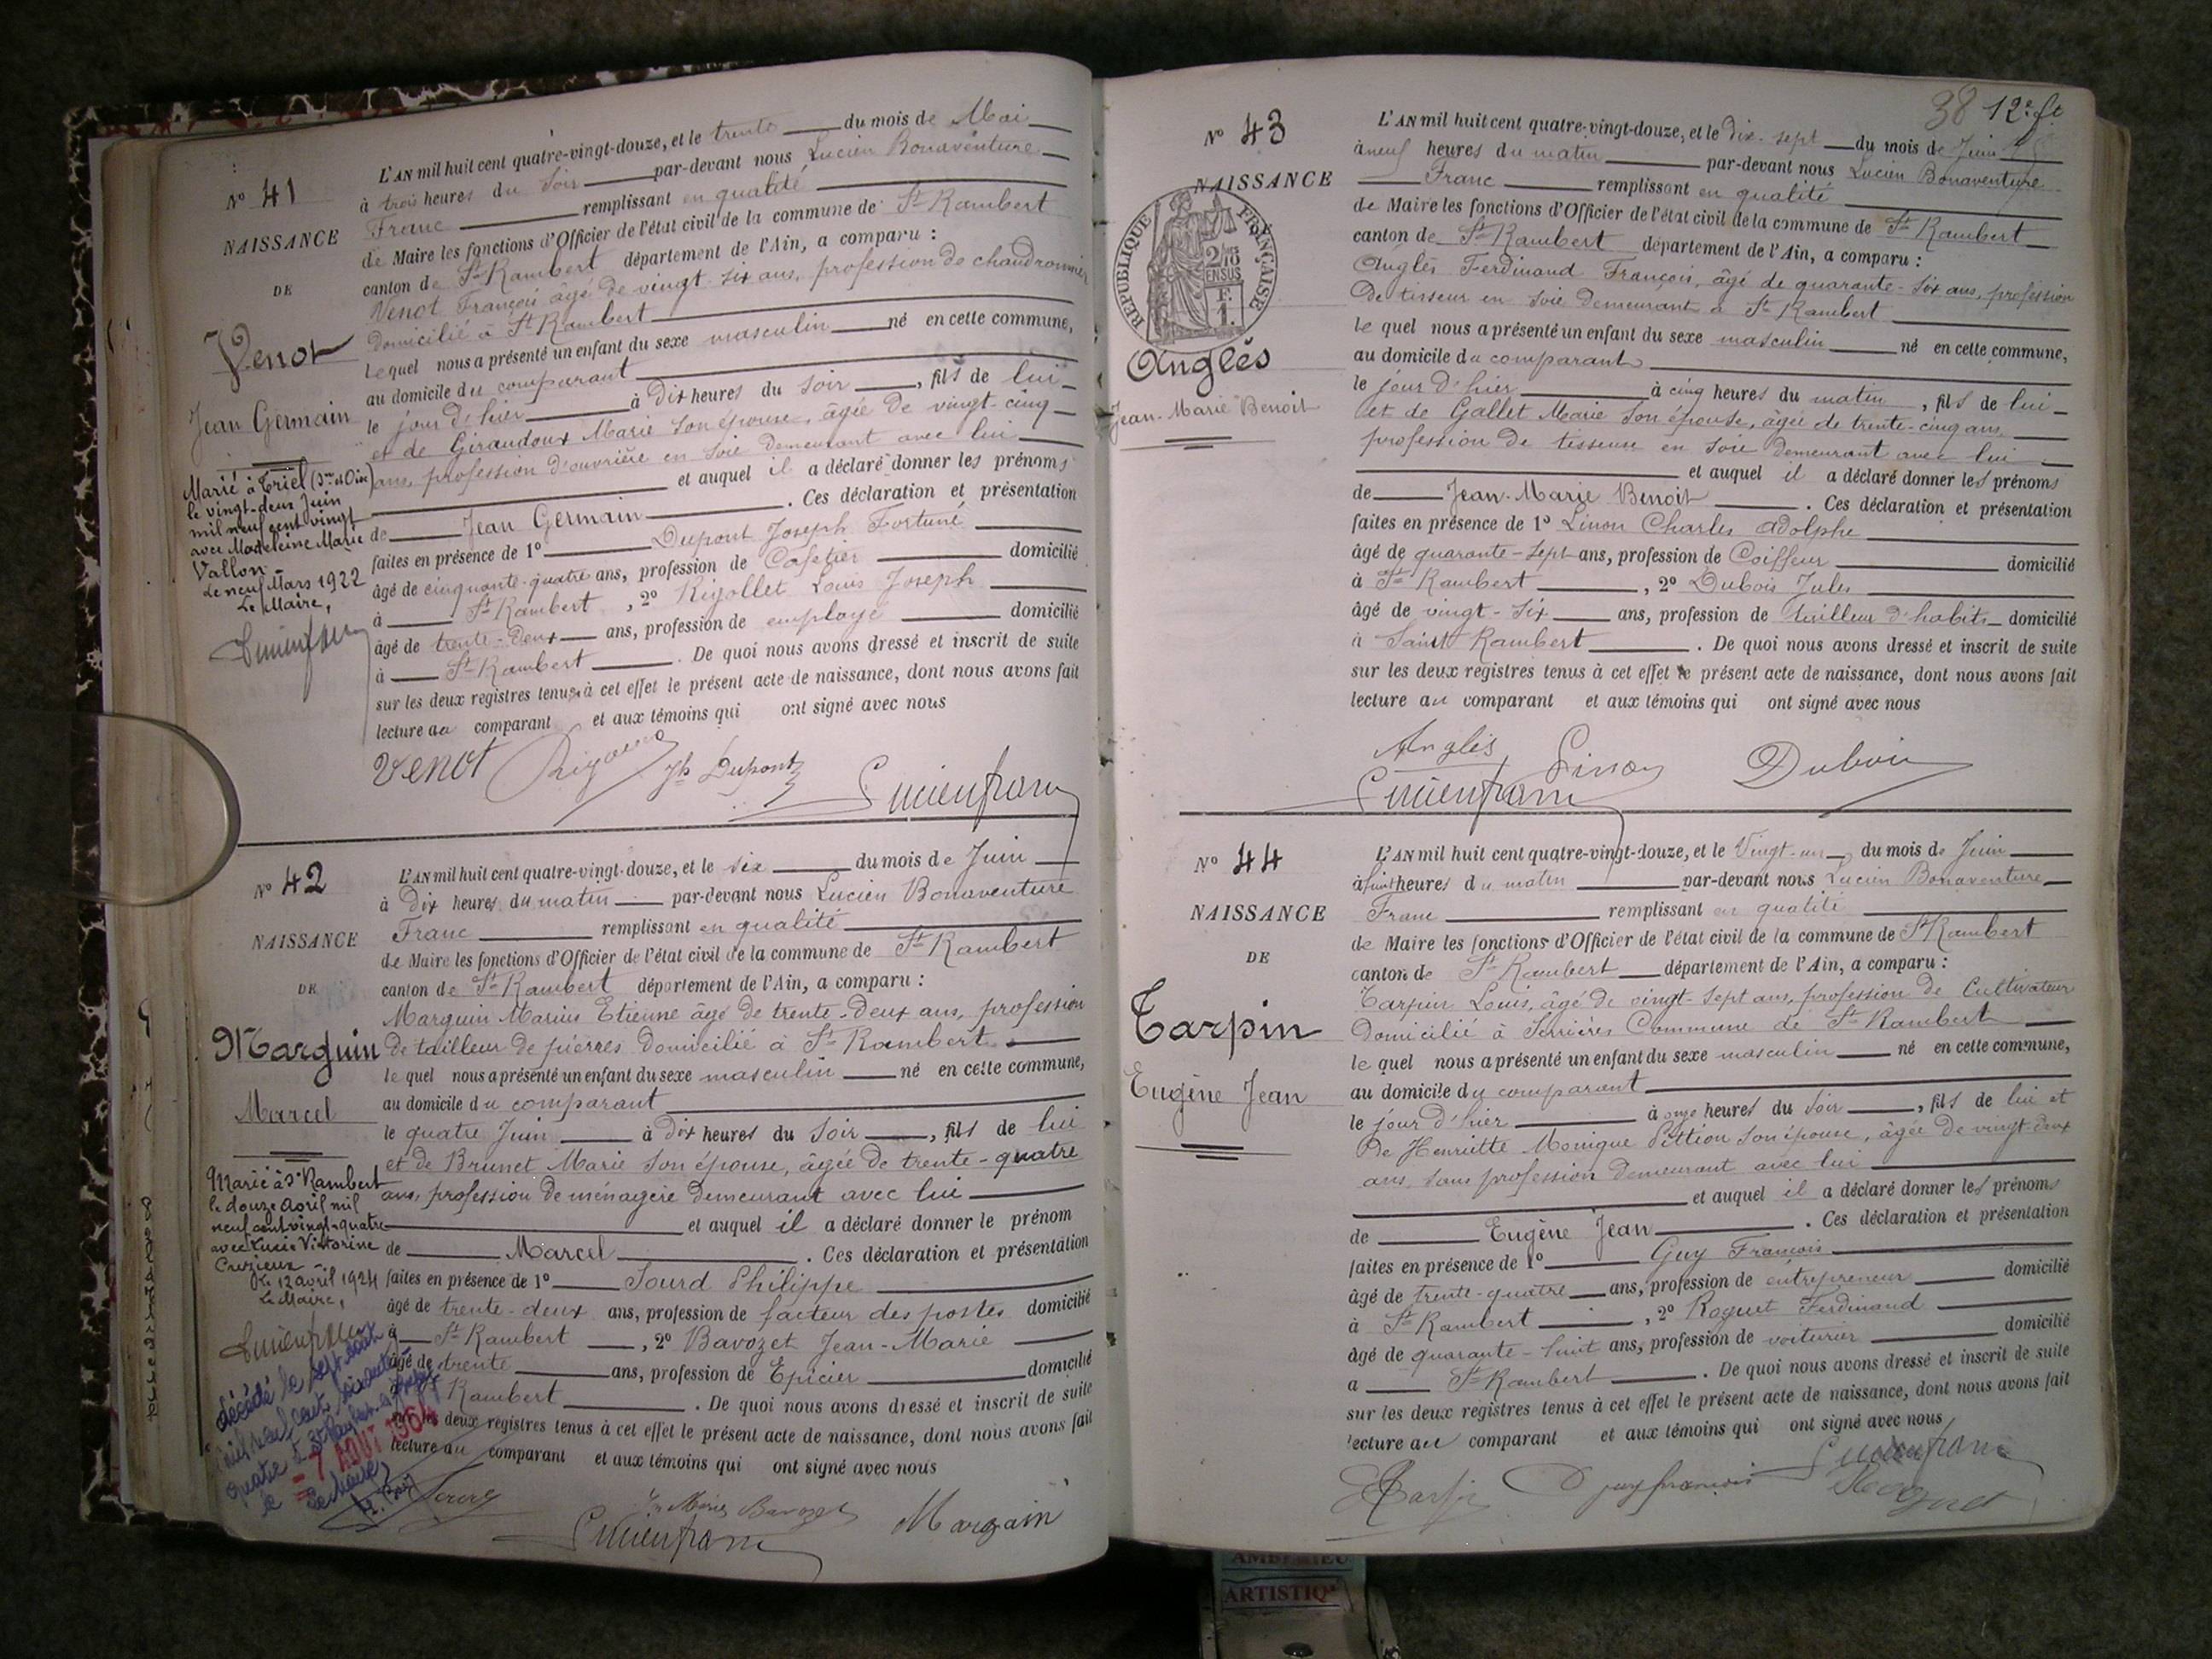 N° 41
NAISSANCE
DE
Venot
Jean Germain
Marié à Triel (Sne et Oise)
le vingt-deux Juin
mil neuf cent vingt
avec Madeleine Marie
Vallon
Le neuf Mars 1922
Le Maire,
L'AN mil huit cent quatre-vingt-douze, et le trente du mois de Mai
à trois heures du soir par-devant nous Lucien Bonaventure
Franc remplissant en qualité
de Maire les fonctions d'Officier de l'état civil de la commune de St Rambert
canton de St Rambert département de l'Ain, a comparu :
Venot François âgé de vingt-six ans, profession de chaudronnier
domicilié à St Rambert
lequel nous a présenté un enfant du sexe masculin né en cette commune,
au domicile du comparant
le jour d'hier à dix heures du soir, fils de lui
et de Giraudoux Marie son épouse, âgée de vingt-cinq
ans, profession d'ouvrière en soie demeurant avec lui
et auquel il a déclaré donner les prénoms
de Jean Germain. Ces déclaration et présentation
faites en présence de 1° Dupont Joseph Fortuné
âgé de cinquante-quatre ans, profession de Cafetier domicilié
à St Rambert, 2° Rigollet Louis Joseph
âgé de trente-deux ans, profession de employé domicilié
à St Rambert. De quoi nous avons dressé et inscrit de suite
sur les deux registres tenus à cet effet le présent acte de naissance, dont nous avons fait
lecture au comparant et aux témoins qui ont signé avec nous
Venot Jh Dupont
Lucien franc
N° 42
NAISSANCE
DE
Marguin
Marcel
Marié à St Rambert
le douze Avril mil
neuf cent vingt-quatre
avec Lucie Victorine
Cruzieux
Le 12 avril 1924
Le Maire,
décédé le sept août
mil neuf cent soixante
quatre à St Rambert
le = 7 AOUT 1964
Le Maire,
L'AN mil huit cent quatre-vingt-douze, et le six du mois de Juin
à Dix heures du matin par-devant nous Lucien Bonaventure
Franc remplissant en qualité
de Maire les fonctions d'Officier de l'état civil de la commune de St Rambert
canton de St Rambert département de l'Ain, a comparu :
Marguin Marius Etienne âgé de trente-deux ans, profession
de tailleur de pierres domicilié à St Rambert
lequel nous a présenté un enfant du sexe masculin né en cette commune,
au domicile du comparant
le quatre Juin à dix heures du soir, fils de lui
et de Brunet Marie son épouse, âgée de trente-quatre
ans, profession de ménagère demeurant avec lui
et auquel il a déclaré donner le prénom
de Marcel. Ces déclaration et présentation
faites en présence de 1° Sourd Philippe
âgé de trente-deux ans, profession de facteur des postes domicilié
à St Rambert, 2° Bavozet Jean-Marie
âgé de trente ans, profession de Epicier domicilié
Rambert. De quoi nous avons dressé et inscrit de suite
deux registres tenus à cet effet le présent acte de naissance, dont nous avons fait
lecture au comparant et aux témoins qui ont signé avec nous
Bavozet Marguin
Lucien franc
38 12e ft
N° 43
NAISSANCE
RÉPUBLIQUE FRANÇAISE
2/10
EN SUS
F.
1.
Anglés
Jean-Marie Benoit
L'AN mil huit cent quatre-vingt-douze, et le dix-sept du mois de Juin
à neuf heures du matin par-devant nous Lucien Bonaventure
Franc remplissant en qualité
de Maire les fonctions d'Officier de l'état civil de la commune de St Rambert
canton de St Rambert département de l'Ain, a comparu :
Anglès Ferdinand François, âgé de quarante-six ans, profession
de tisseur en soie demeurant à St Rambert
lequel nous a présenté un enfant du sexe masculin né en cette commune,
au domicile du comparant
le jour d'hier à cinq heures du matin, fils de lui
et de Gallet Marie son épouse, âgée de trente-cinq ans,
profession de tisseuse en soie demeurant avec lui
et auquel il a déclaré donner les prénoms
de Jean-Marie Benoit. Ces déclaration et présentation
faites en présence de 1° Linon Charles Adolphe
âgé de quarante-sept ans, profession de Coiffeur domicilié
à St Rambert, 2° Dubois Jules
âgé de vingt-six ans, profession de tailleur d'habits domicilié
à Saint Rambert. De quoi nous avons dressé et inscrit de suite
sur les deux registres tenus à cet effet le présent acte de naissance, dont nous avons fait
lecture au comparant et aux témoins qui ont signé avec nous
Anglès Linon Dubois
Lucien franc
N° 44
NAISSANCE
DE
Tarpin
Eugène Jean
L'AN mil huit cent quatre-vingt-douze, et le Vingt-un du mois de Juin
à huit heures du matin par-devant nous Lucien Bonaventure
Franc remplissant en qualité
de Maire les fonctions d'Officier de l'état civil de la commune de St Rambert
canton de St Rambert département de l'Ain, a comparu :
Tarpin Louis, âgé de vingt-sept ans, profession de Cultivateur
domicilié à Serrières Commune de St Rambert
lequel nous a présenté un enfant du sexe masculin né en cette commune,
au domicile du comparant
le jour d'hier à onze heures du soir, fils de lui et
de Henriette Monique Pittion son épouse, âgée de vingt-deux
ans, sans profession demeurant avec lui
et auquel il a déclaré donner les prénoms
de Eugène Jean. Ces déclaration et présentation
faites en présence de 1° Guy François
âgé de trente-quatre ans, profession de entrepreneur domicilié
à St Rambert, 2° Roguet Ferdinand
âgé de quarante-huit ans, profession de voiturier domicilié
a St Rambert. De quoi nous avons dressé et inscrit de suite
sur les deux registres tenus à cet effet le présent acte de naissance, dont nous avons fait
lecture au comparant et aux témoins qui ont signé avec nous
Guy françois Lucien franc
Roguet
AMBERIEU
ARTISTIQ